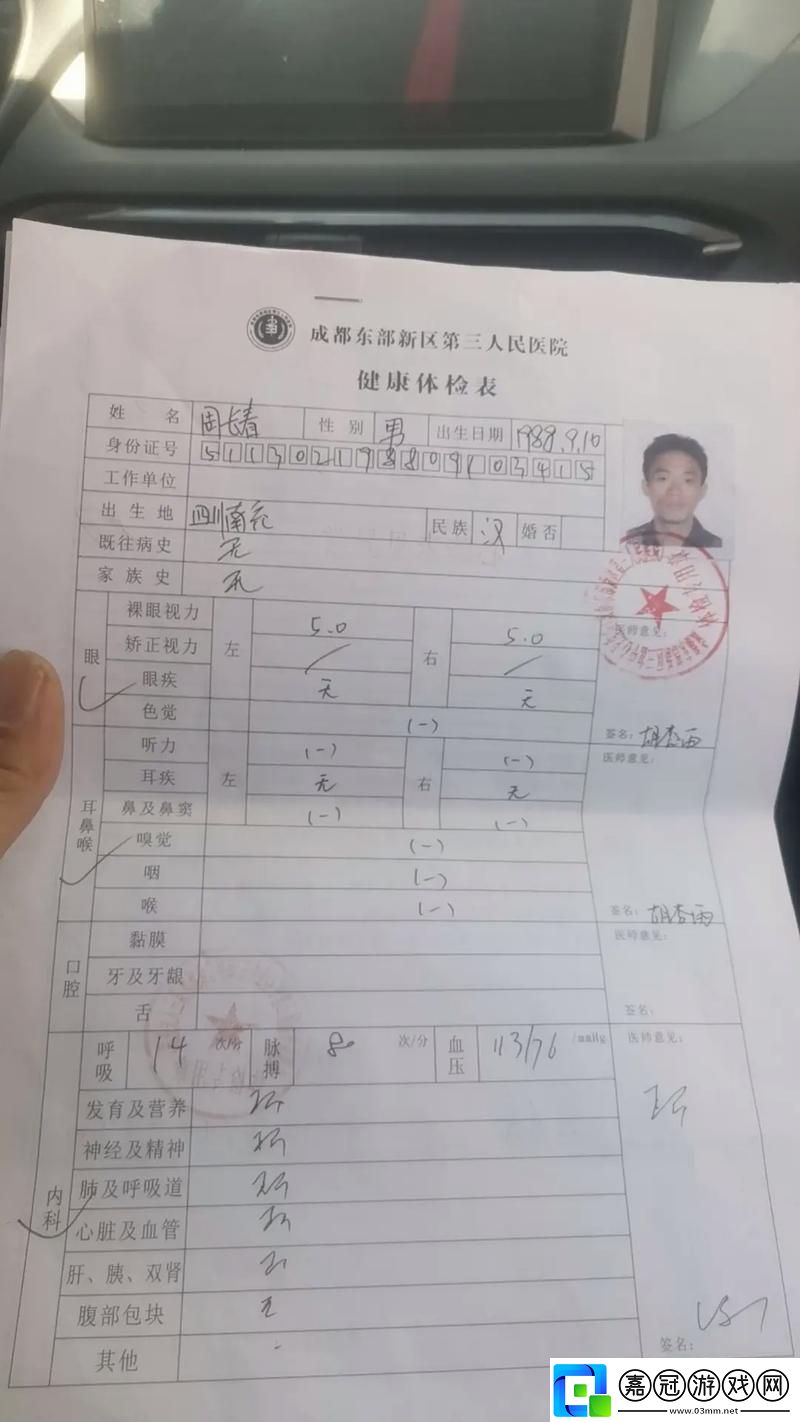 成都东部新区第三人民医院
健康体检表
姓 名 周长春 性 别 男 出生日期 1988.9.10
身份证号 511302198809103415
工作单位
出 生 地 四川南充 民族 汉 婚否
既往病史 无
家 族 史 无
眼
裸眼视力 左 5.0 右 5.0 医师意见:
矫正视力 / /
眼疾 无 无
色觉 (-) 签名: 胡杏雨
耳鼻喉
听力 左 (-) 右 (-) 医师意见:
耳疾 无 无
鼻及鼻窦 (-) (-)
嗅觉 (-)
咽 (-)
喉 (-) 签名: 胡杏雨
口腔
黏膜 医师意见:
牙及牙龈
舌 签名:
内科
呼吸 14 次/分 脉搏 80 次/分 血压 113/76 /mmHg 医师意见:
发育及营养
神经及精神
肺及呼吸道
心脏及血管
肝、胰、双肾
腹部包块 无
其他 - 签名:
嘉冠游戏网
www.03mm.net